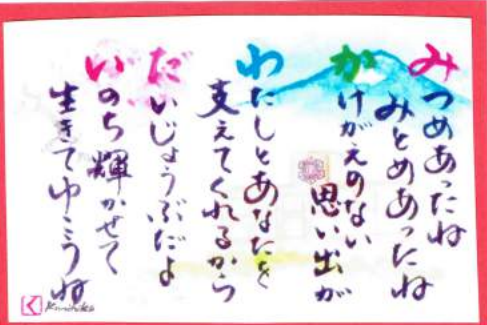 みつめあったね
みとめあったね
かけがえのない
思い出が
わたしとあなたを
支えてくれるから
だいじょうぶだよ
いのち輝かせて
生きてゆこうね
く